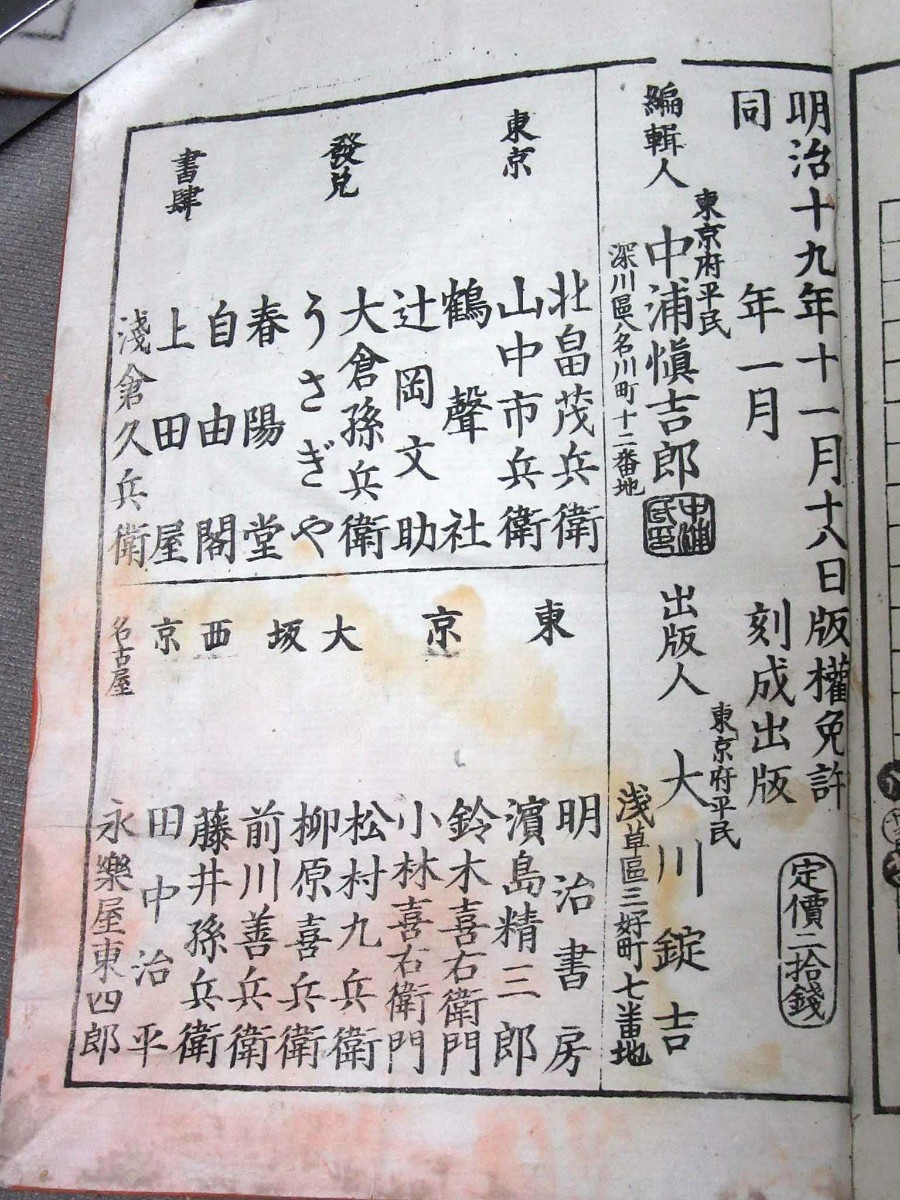 明治十九年十一月十八日版權免許
同年一月刻成出版
定價二拾錢
東京府平民
編輯人 中浦愼吉郎
深川區八名川町十二番地
東京府平民
出版人 大川錠吉
浅草區三好町七番地
東京
發兌
書肆
北畠茂兵衛
山中市兵衛
鶴聲社
辻岡文助
大倉孫兵衛
うさぎや
春陽堂
自由閣
上田屋
淺倉久兵衛
東京
明治書房
濱島精三郎
鈴木喜右衛門
小林喜右衛門
大坂
松村九兵衛
柳原喜兵衛
前川善兵衛
西京
藤井孫兵衛
田中治平
名古屋
永樂屋東四郎